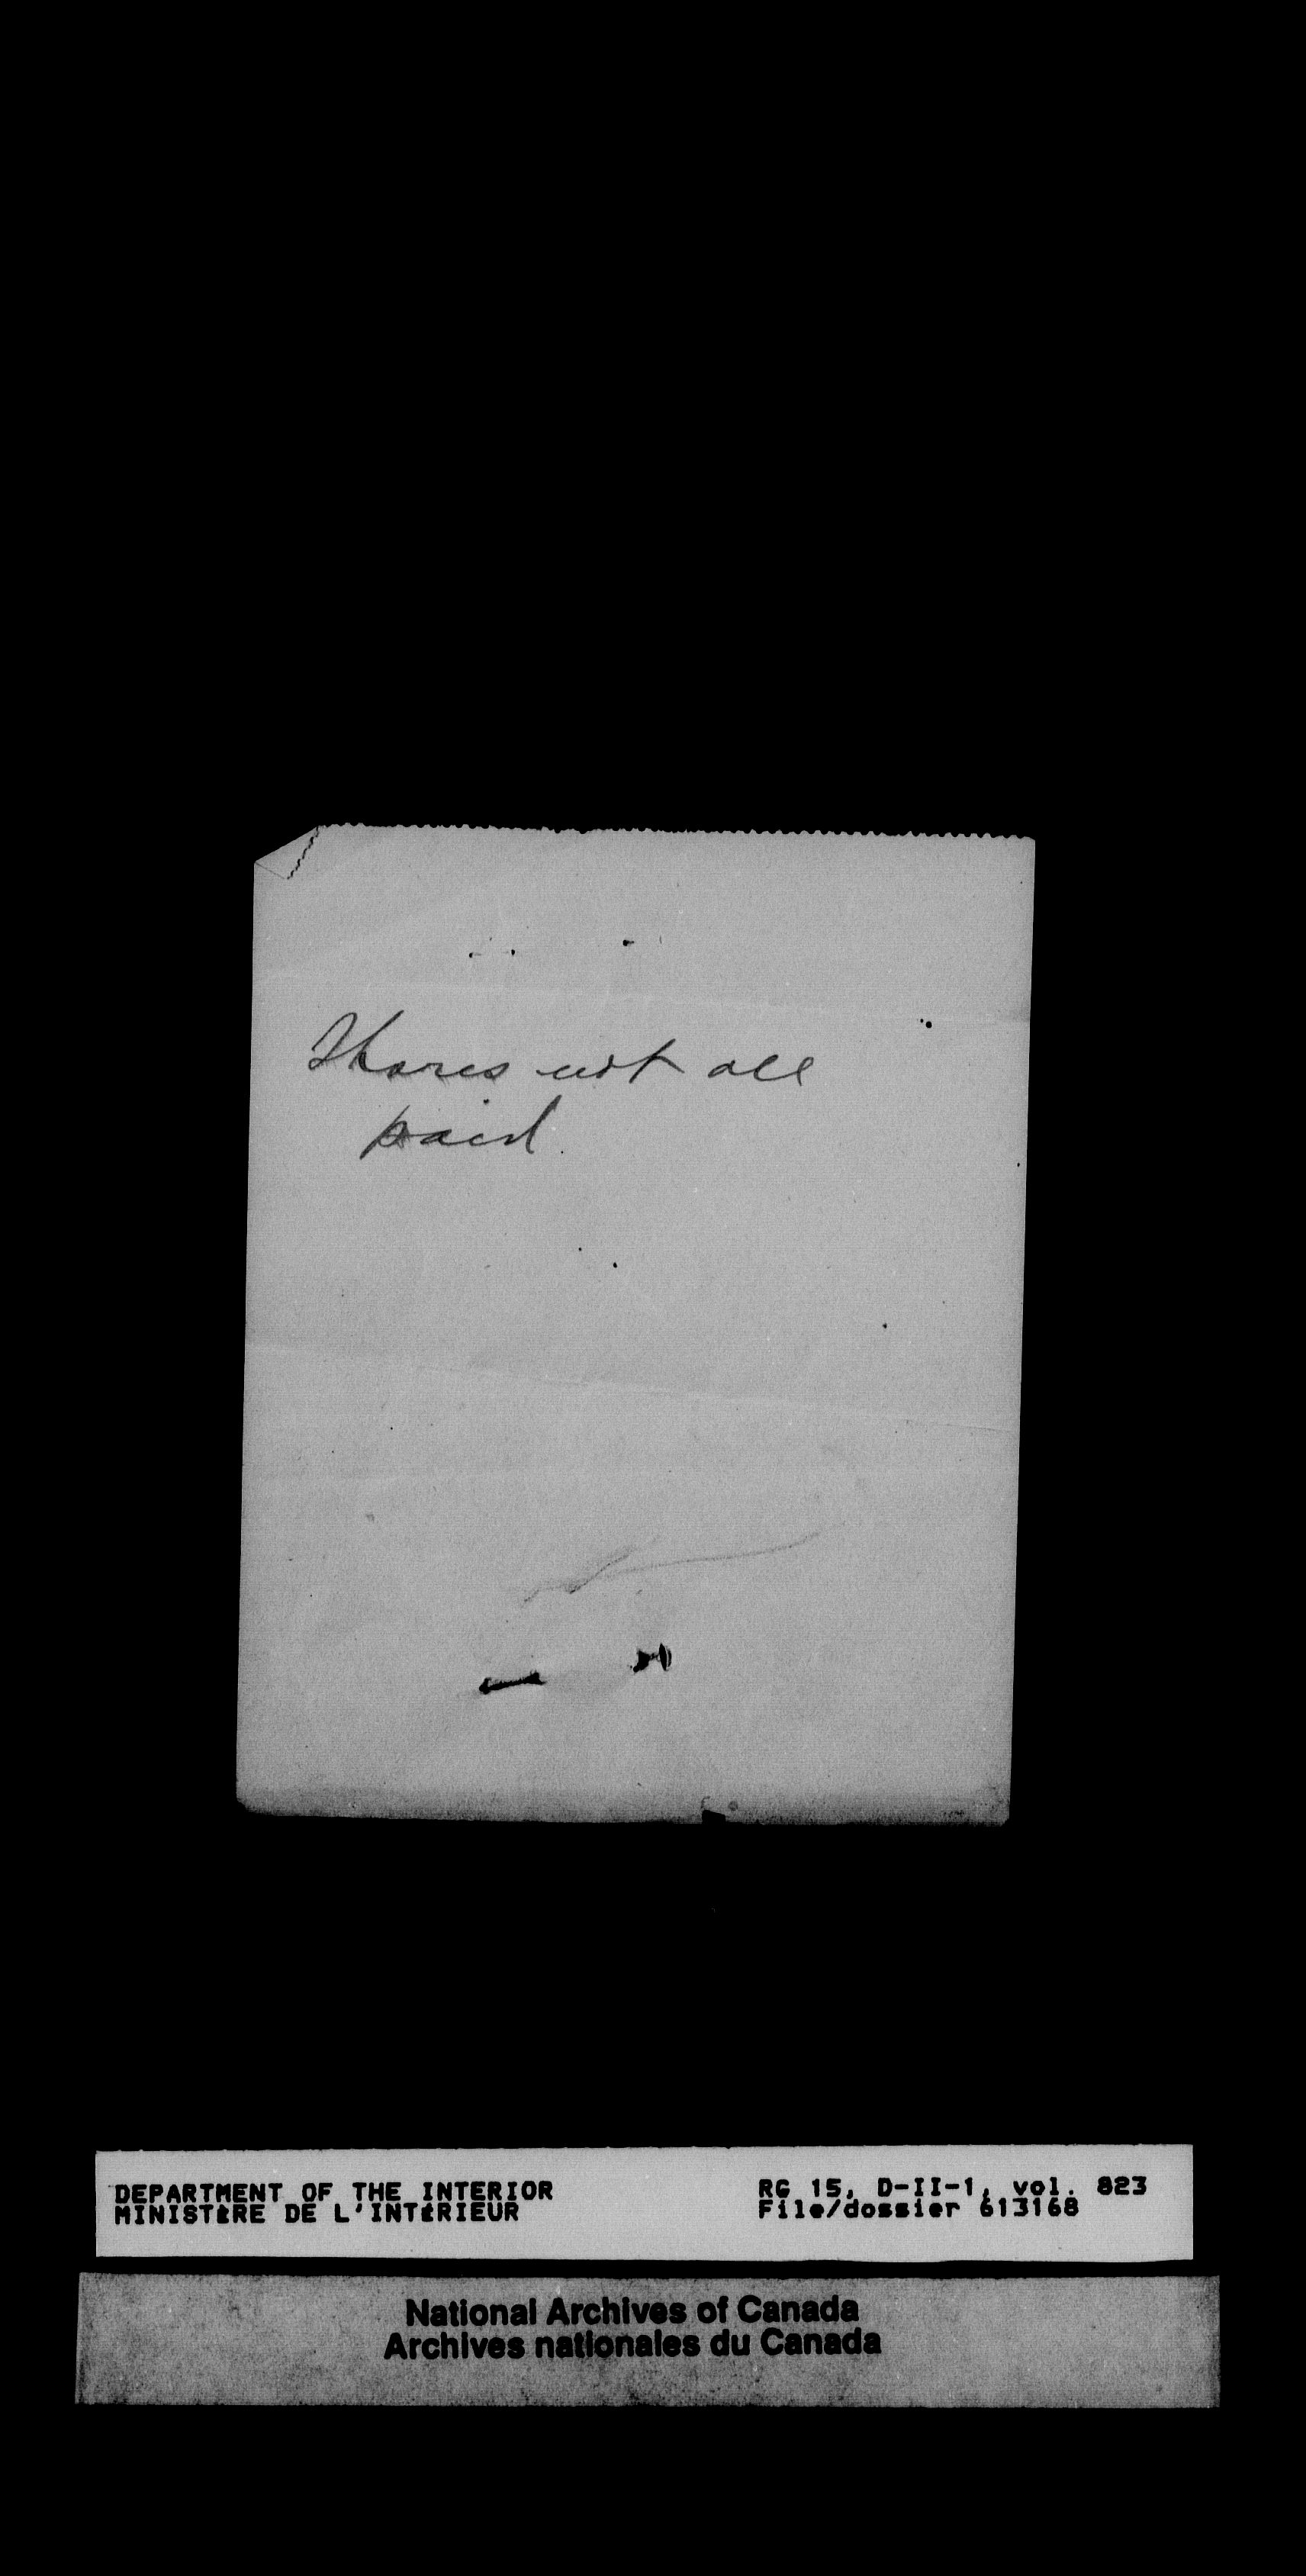 Shares not all
paid.
DEPARTMENT OF THE INTERIOR
MINISTÈRE DE L'INTÉRIEUR
RG 15, D-II-1, vol. 823
File/dossier 613168
National Archives of Canada
Archives nationales du Canada